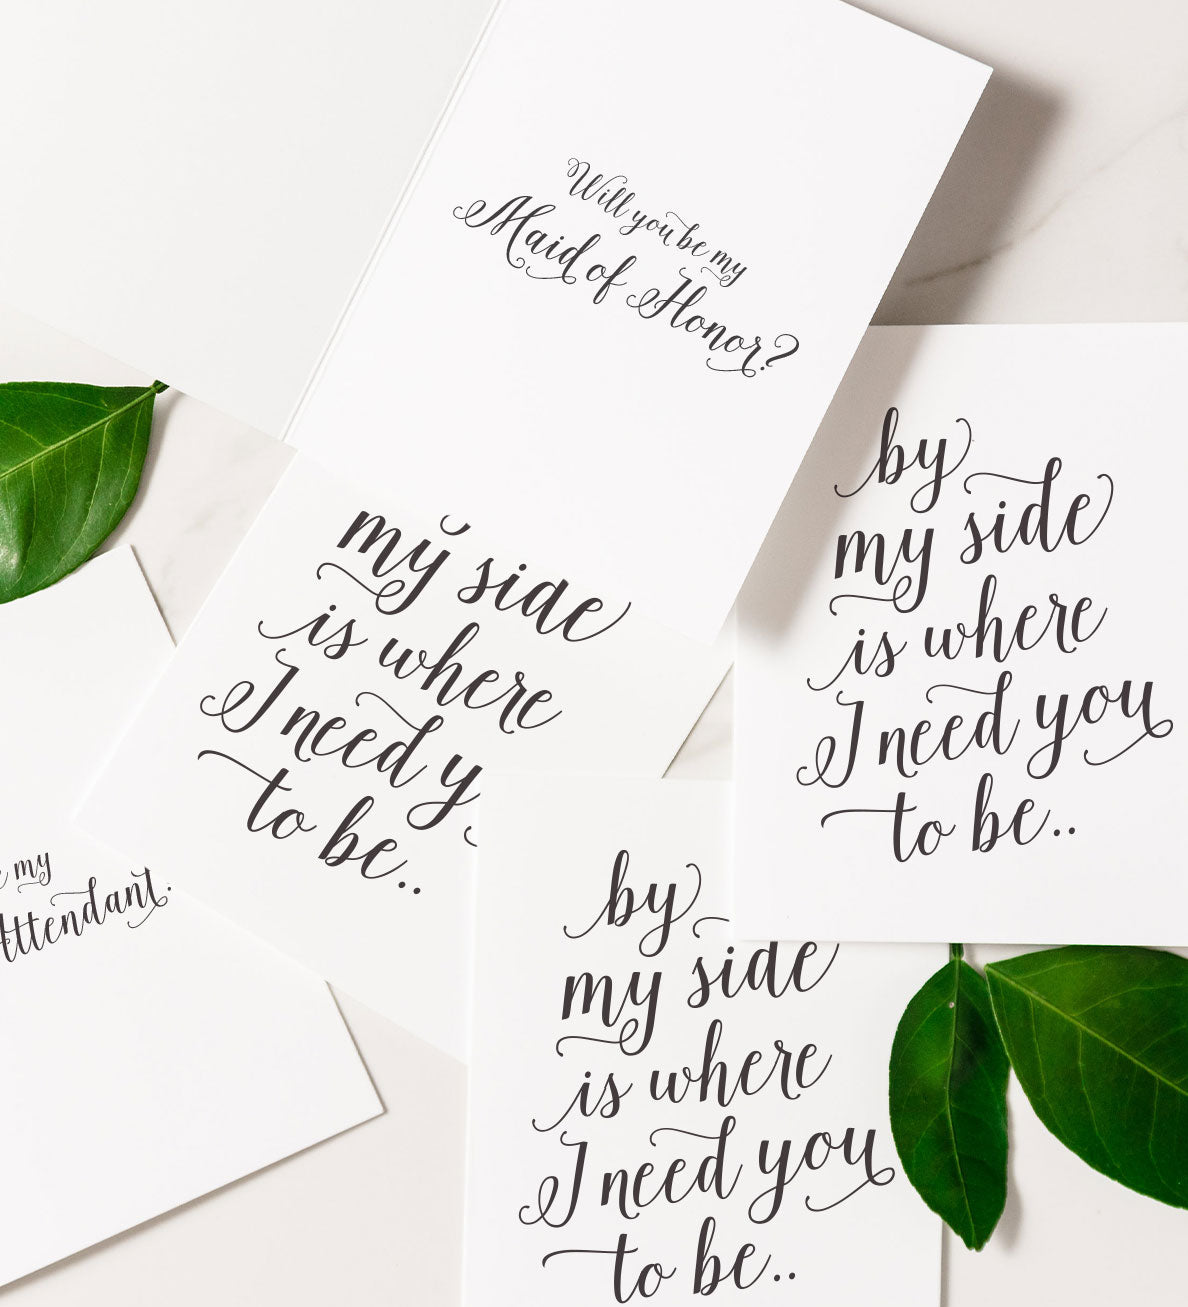 Will you be my
Maid of Honor?
by
my side
is where
I need you
to be..
my side
is where
I need
to be..
my
Attendant.
by
my side
is where
I need you
to be..